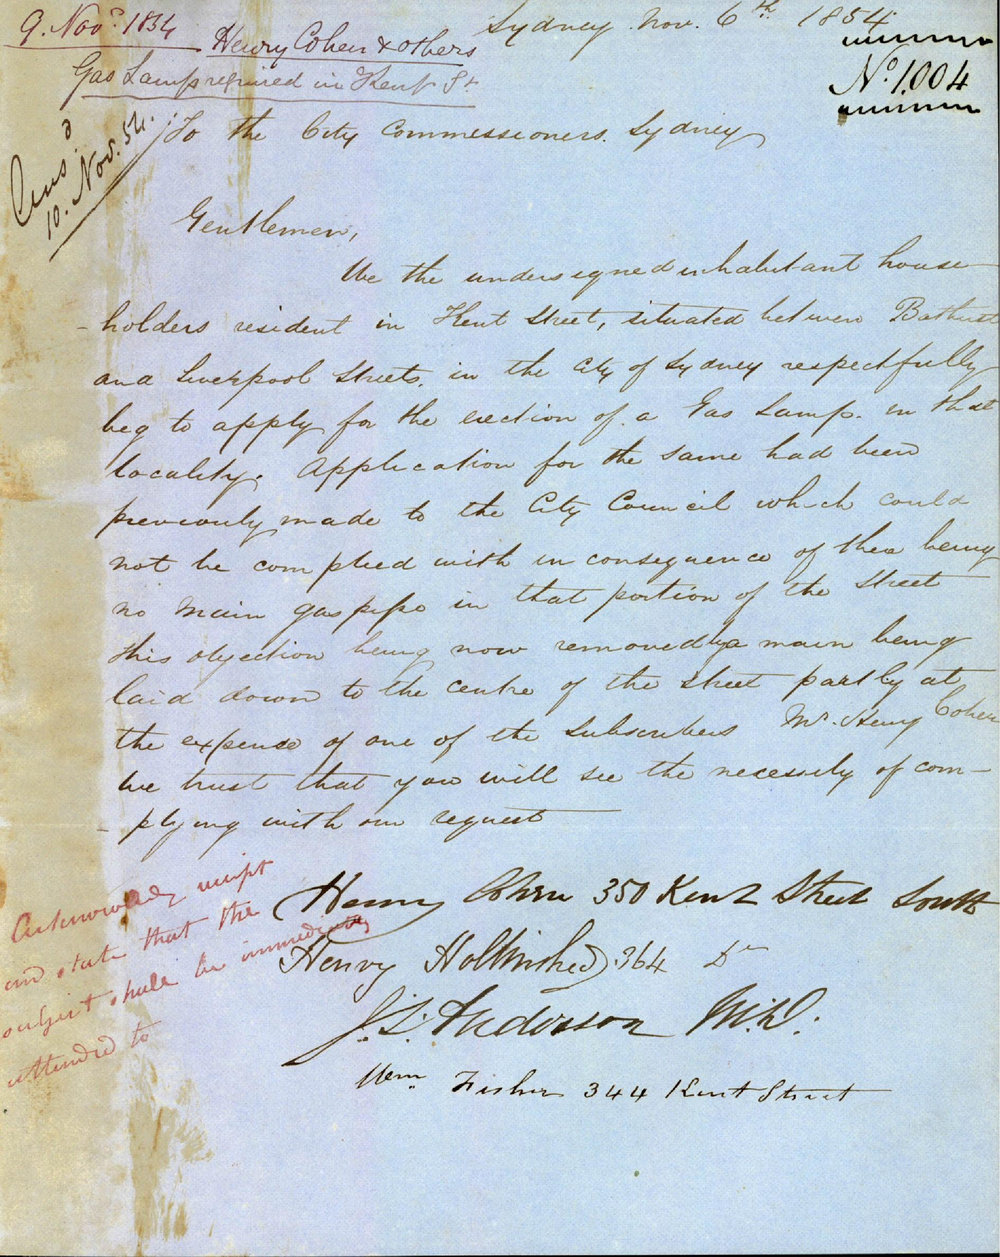 9. Nov.r 1854
Henry Cohen & others
Gas Lamp required in Kent St
Sydney Nov. 6th 1854
No. 1004
Ansd
10. Nov. 54.
To the City Commissioners. Sydney
Gentlemen,
We the undersigned inhabitant house
-holders resident in Kent Street, situated between Bathurst
and Liverpool Streets, in the City of Sydney respectfully
beg to apply for the erection of a Gas Lamp. in that
locality. Application for the same had been
previously made to the City Council which could
not be complied with in consequence of there being
no main gas pipe in that portion of the Street
this objection being now removed by a main being
laid down to the centre of the Street partly at
the expense of one of the Subscribers Mr. Henry Cohen
we trust that you will see the necessity of com-
-plying with our request
Henry Cohen 350 Kent Street South
Henry Hollinshed 364 Do
J. L. Anderson M.D.
Wm Fisher 344 Kent Street
Acknowledge receipt
and state that the
subject shall be immediately
attended to